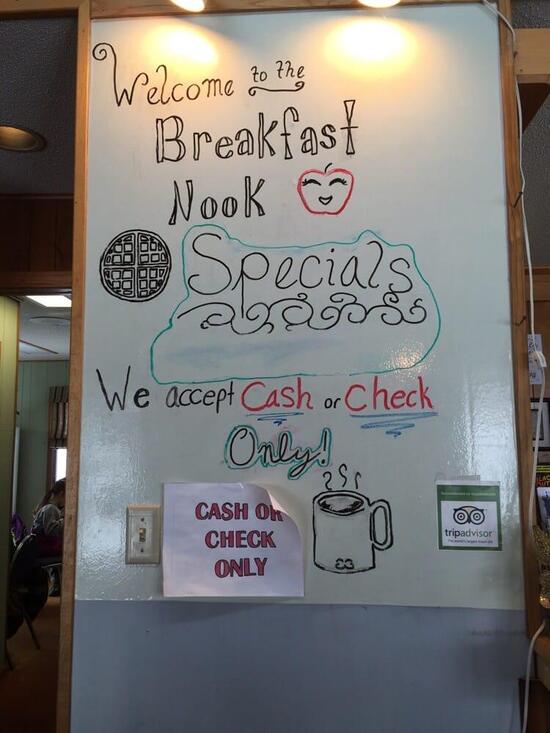 Welcome to the
Breakfast
Nook
Specials
We accept Cash or Check
Only!
CASH OR
CHECK
ONLY
tripadvisor